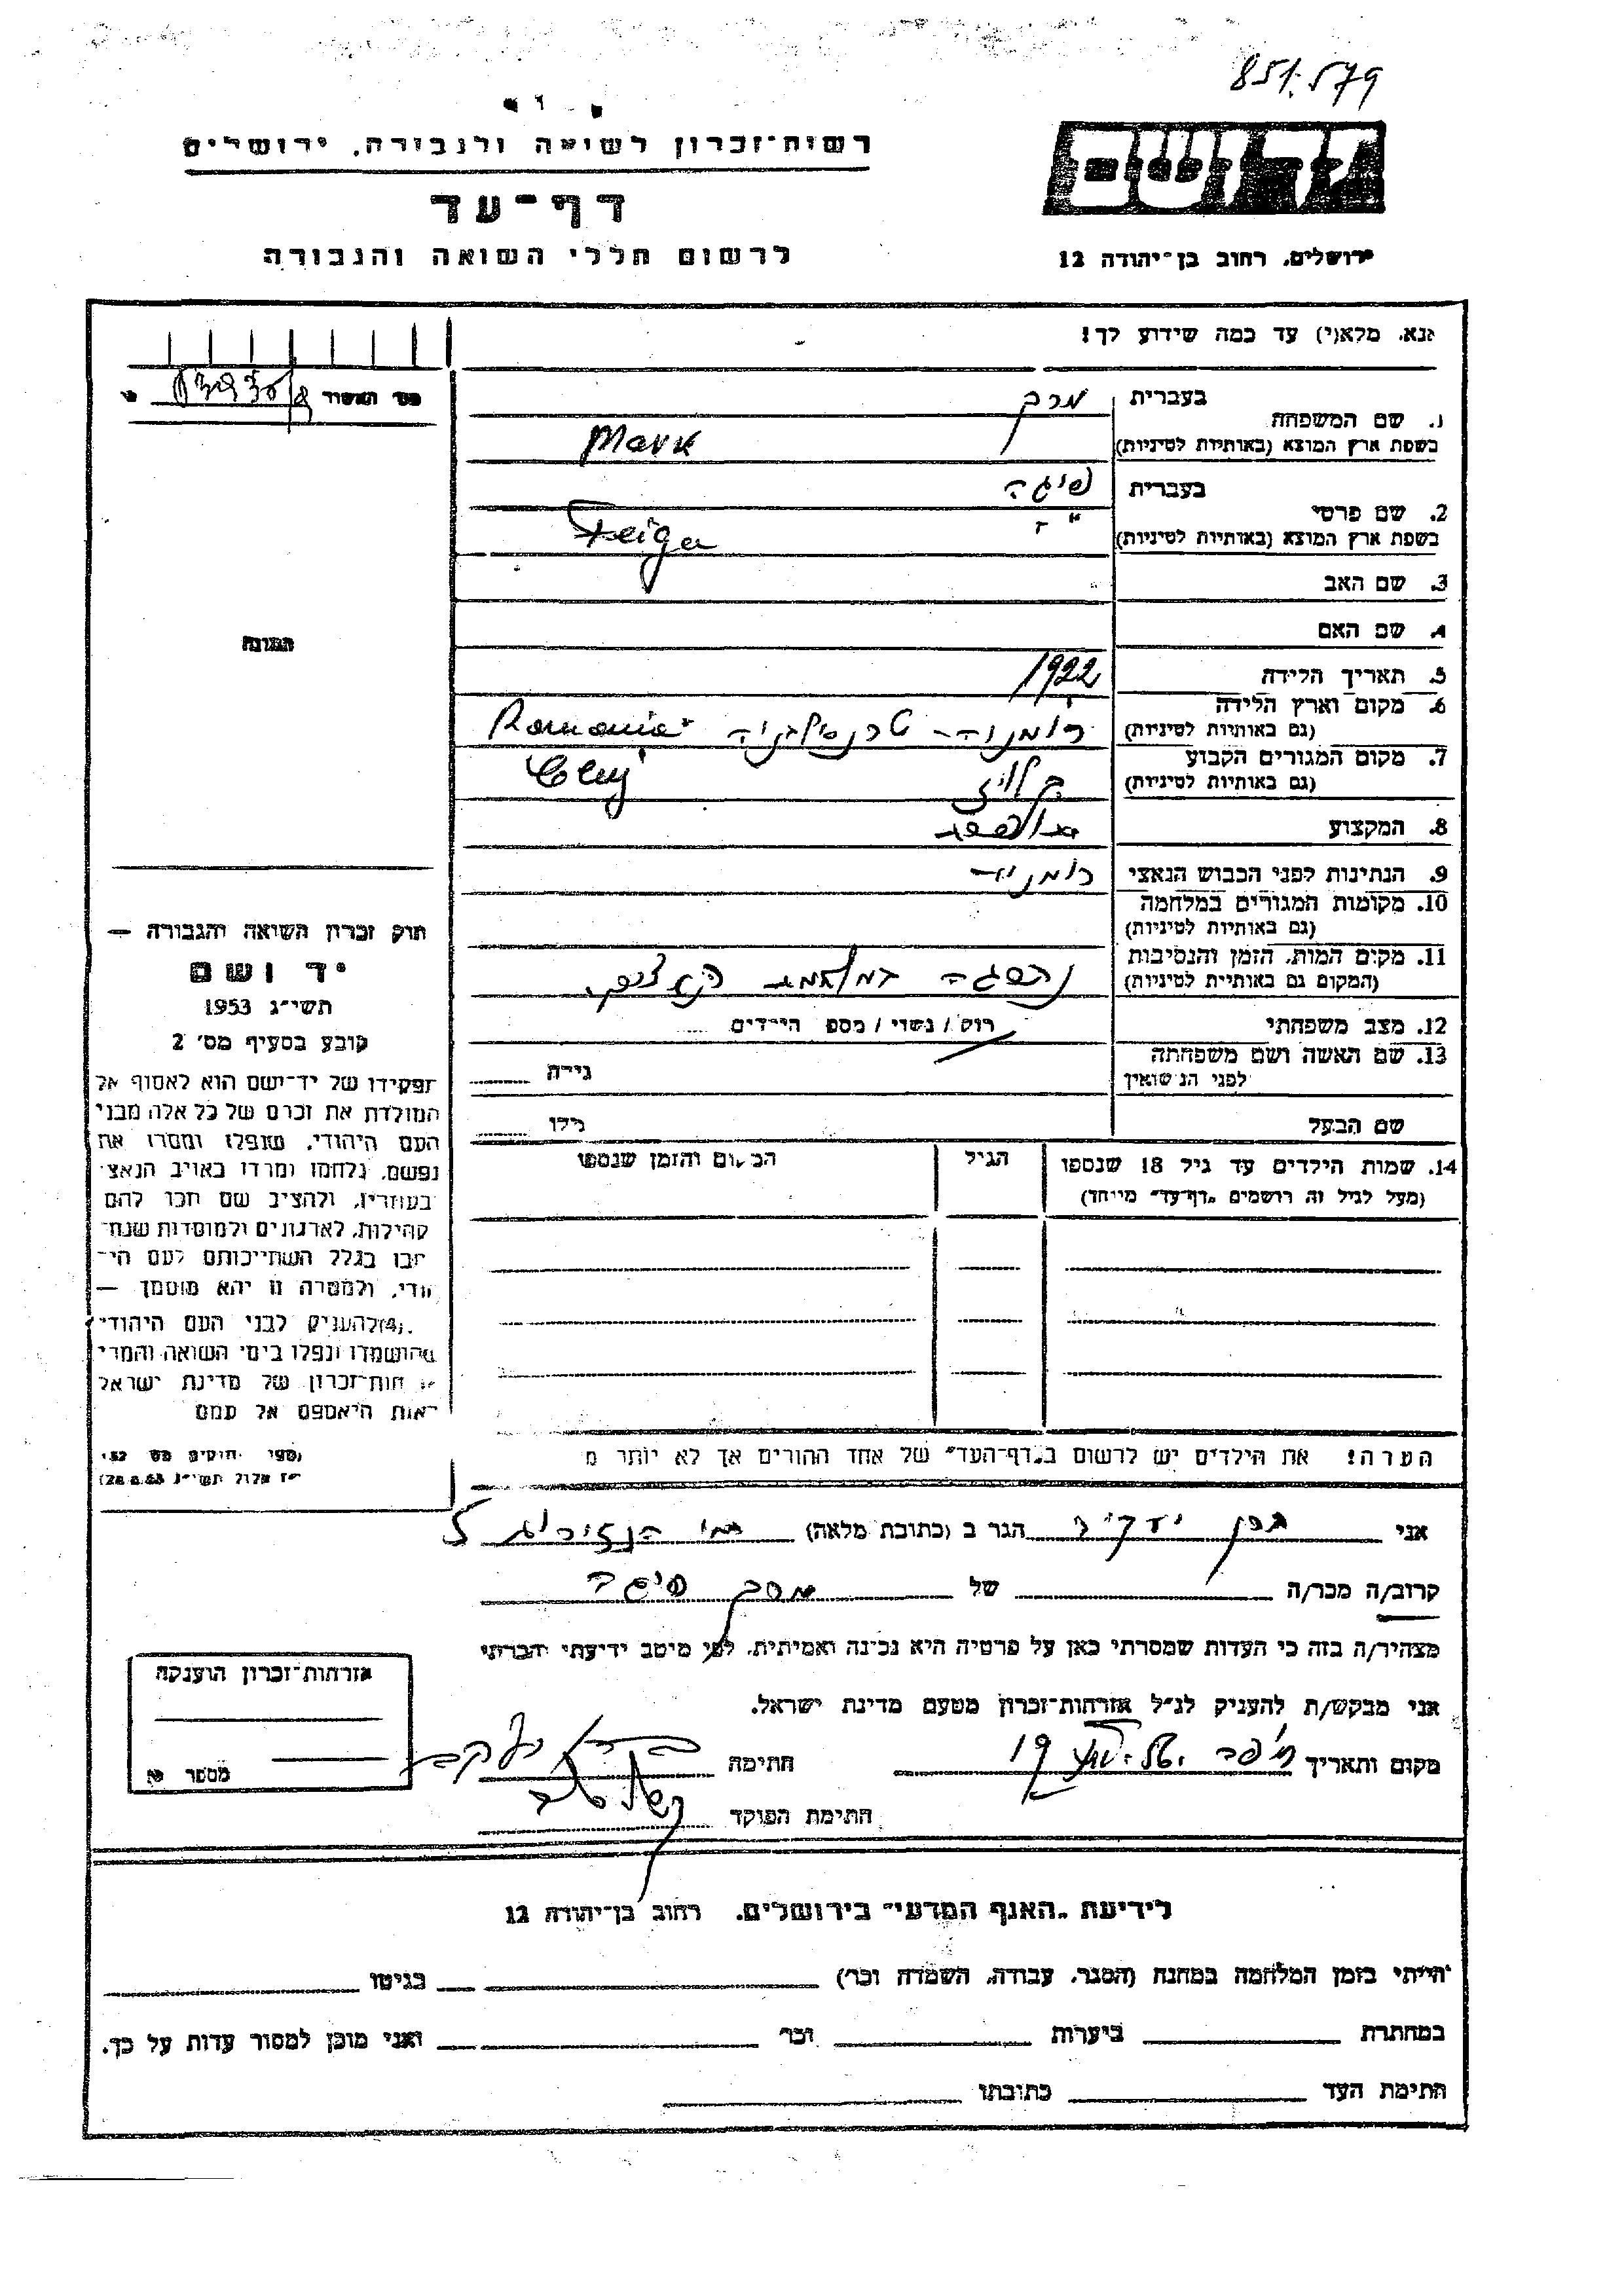 851.579
רשות־זכרון לשואה ולגבורה, ירושלים
דף־עד
לרשום חללי השואה והגבורה
ירושלים, רחוב בן־יהודה 12
אנא, מלא(י) עד כמה שידוע לך!
מס׳ האשור
1. שם המשפחה
בעברית מרק
בשפת ארץ המוצא (באותיות לטיניות) Mark
2. שם פרטי
בעברית פיגה
בשפת ארץ המוצא (באותיות לטיניות) Feiga
3. שם האב
4. שם האם
5. תאריך הלידה 1922
6. מקום וארץ הלידה
(גם באותיות לטיניות) רומניה - טרנסילבניה Romania
7. מקום המגורים הקבוע
(גם באותיות לטיניות) קלוז Cluj
8. המקצוע
9. הנתינות לפני הכבוש הנאצי רומניה
10. מקומות המגורים במלחמה
(גם באותיות לטיניות)
11. מקום המות, הזמן והנסיבות
(המקום גם באותיות לטיניות) נהפגה
12. מצב משפחתי רוק / נשוי / מספר הילדים
13. שם האשה ושם משפחתה
לפני הנישואין גילה
שם הבעל גילו
14. שמות הילדים עד גיל 18 שנספו הגיל המקום והזמן שנספו
(מעל לגיל זה רושמים „דף־עד״ מיוחד)
הערה! את הילדים יש לרשום ב„דף־העד״ של אחד ההורים אך לא יותר מ
התמונה
חוק זכרון השואה והגבורה —
יד ושם
תשי״ג 1953
קובע בסעיף מס׳ 2
תפקידו של יד־ושם הוא לאסוף אל
המולדת את זכרם של כל אלה מבני
העם היהודי, שנפלו ומסרו את
נפשם, נלחמו ומרדו באויב הנאצי
בעוזריו, ולהציב שם וזכר להם
קהילות, לארגונים ולמוסדות שנח־
רבו בגלל השתייכותם לעם היה־
ודי, ולמטרה זו יהא מוסמך —
(4) להעניק לבני העם היהודי
שהושמדו ונפלו בימי השואה והמרי
אזרחות־זכרון של מדינת ישראל
לאות היאספם אל עמם
(ספר החוקים מס׳ 132,
י״ז אלול תשי״ג 28.8.53)
אני יעקב הגר ב (כתובת מלאה) רח׳ 5
קרוב/ה מכר/ה של מרק פיגה
מצהיר/ה בזה כי העדות שמסרתי כאן על פרטיה היא נכונה ואמיתית, לפי מיטב ידיעתי והכרתי
אני מבקש/ת להעניק לנ״ל אזרחות־זכרון מטעם מדינת ישראל.
מקום ותאריך חיפה 19 חתימה יעקב
חתימת הפוקד
אזרחות־זכרון הוענקה
מספר
לידיעת „האגף המדעי״ בירושלים, רחוב בן־יהודה 12
הייתי בזמן המלחמה במחנה (הסגר, עבודה, השמדה וכו׳) בגיטו
במחתרת ביערות וכו׳ ואני מוכן למסור עדות על כך.
חתימת העד כתובתו